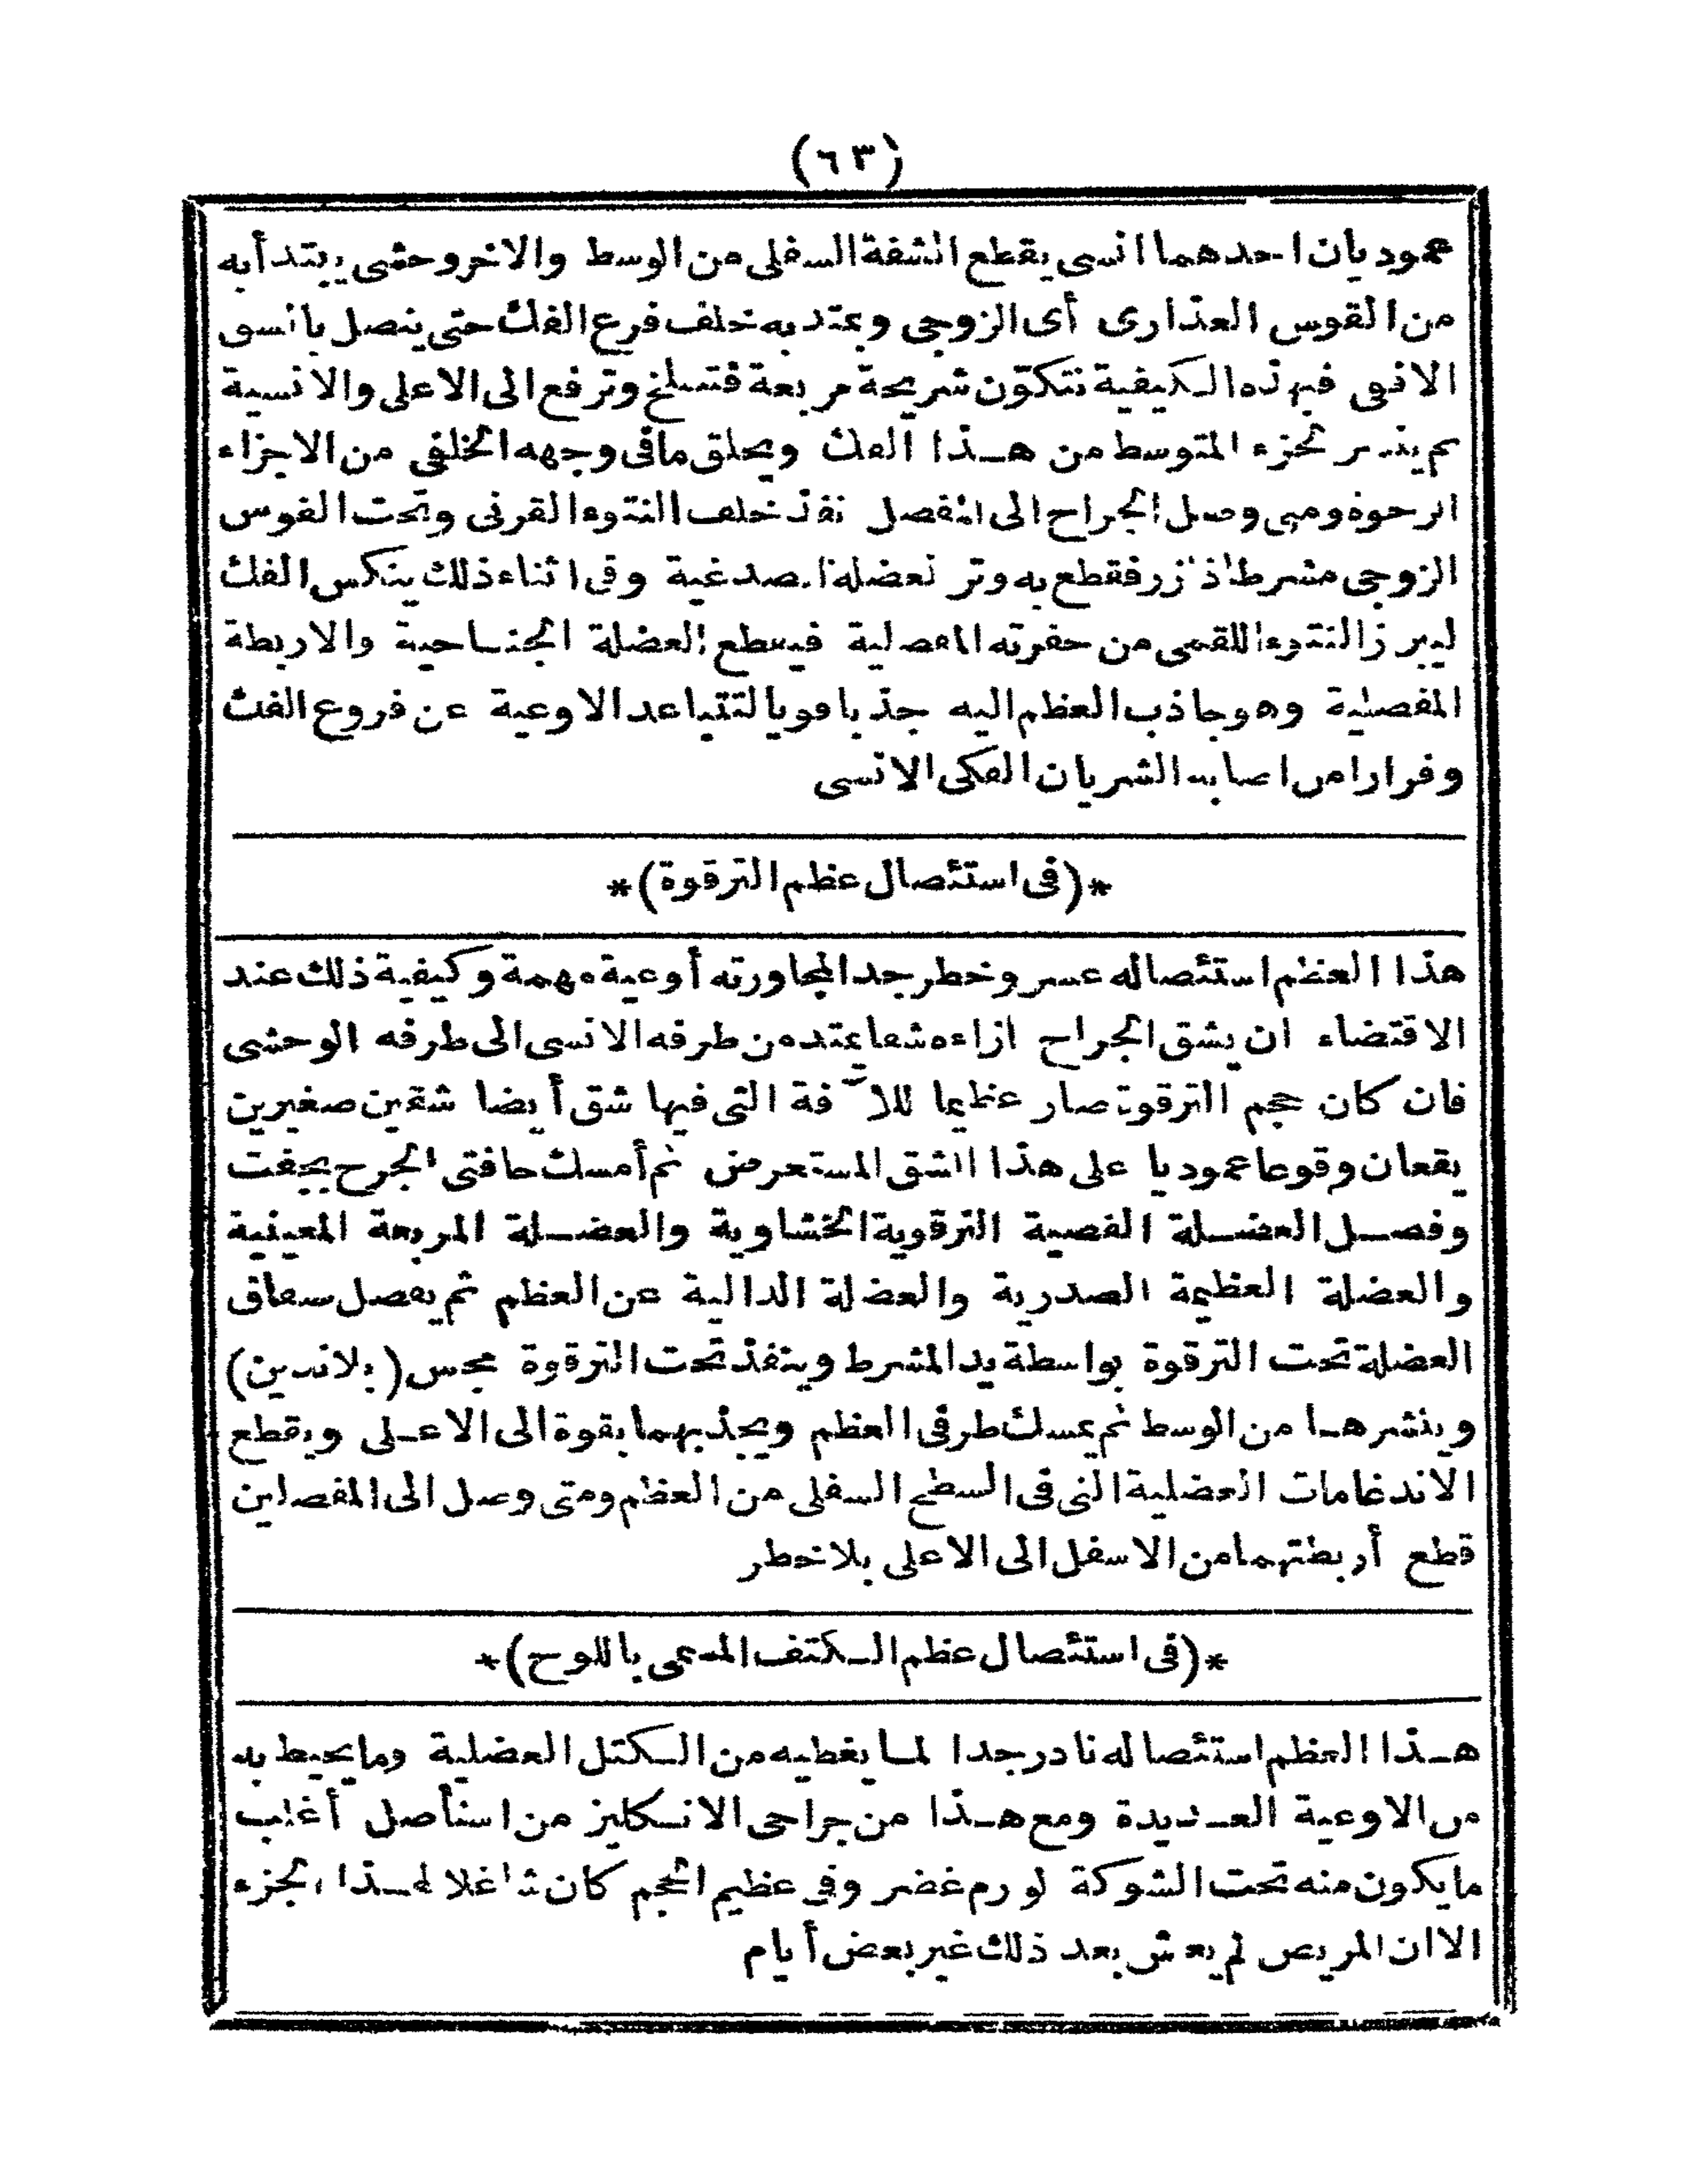 (٦٣)
عموديان احدهما انسى يقطع الشفة السفلى من الوسط والاخر وحشى يبتدأ به
من القوس العذارى أى الزوجى ويمتد به خلف فرع الفك حتى يتصل بالشق
الافقى فبهذه الكيفية تتكوّن شريحة مربعة فتسلخ وترفع الى الاعلى والانسية
ثم ينشر الجزء المتوسط من هذا الفك ويحلق مافى وجهه الخلفى من الاجزاء
الرخوة ومتى وصل الجراح الى المفصل نفذ خلف النتوء القرنى وتحت القوس
الزوجى مشرط اذا زر فقطع به وتر العضلة الصدغية وفى اثناء ذلك ينكس الفك
ليبرز النتوء اللقمى من حفرته المفصلية فيقطع العضلة الجناحية والاربطة
المفصلية وهو جاذب العظم اليه جذبا قويا لتتباعد الاوعية عن فروع الفك
وفرارا من اصابه الشريان الفكى الانسى
*(فى استئصال عظم الترقوة)*
هذا العظم استئصاله عسر وخطر جدا لمجاورته أوعية مهمة وكيفية ذلك عند
الاقتضاء ان يشق الجراح ازاءه شقا يمتد من طرفه الانسى الى طرفه الوحشى
فان كان حجم الترقوة صار عظيما للآفة التى فيها شق أيضا شقين صغيرين
يقعان وقوعا عموديا على هذا الشق المستعرض ثم أمسك حافتى الجرح بجفت
وفصل العضلة القصية الترقوية الخشاوية والعضلة المربعة المعينية
والعضلة العظيمة الصدرية والعضلة الدالية عن العظم ثم يفصل سمحاق
العضلة تحت الترقوة بواسطة يد المشرط وينفذ تحت الترقوة مجس (بلاندين)
وينشرها من الوسط ثم يمسك طرفى العظم ويجذبهما بقوة الى الاعلى ويقطع
الاندغامات العضلية التى فى السطح السفلى من العظم ومتى وصل الى المفصلين
قطع أربطتهما من الاسفل الى الاعلى بلا خطر
*(فى استئصال عظم الكتف المسمى باللوح)*
هذا العظم استئصاله نادر جدا لما يغطيه من الكتل العضلية وما يحيط به
من الاوعية العديدة ومع هذا من جراحى الانكليز من استأصل أغلب
ما يكون منه تحت الشوكة لورم غضروفى عظيم الحجم كان شاغلا لهذا الجزء
الا ان المريض لم يعش بعد ذلك غير بعض أيام